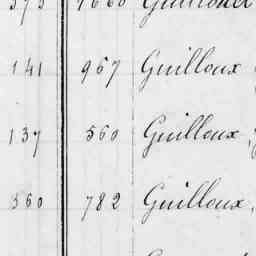 141 967 Guilloux
137 560 Guilloux,
360 782 Guilloux,